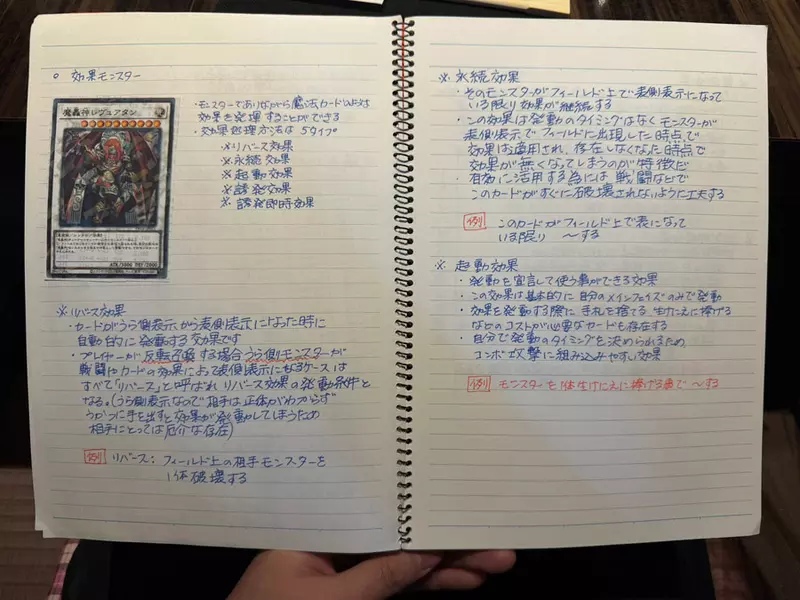 ○ 効果モンスター
魔轟神レヴュアタン
ATK/3000 DEF/2000
・モンスターでありながら魔法カードのような
効果を発揮することができる
・効果処理方法は5タイプ
※リバース効果
※永続効果
※起動効果
※誘発効果
※誘発即時効果
※リバース効果
・カードがうら側表示から表側表示になった時に
自動的に発動する効果です
・プレイヤーが反転召喚する場合うら側モンスターが
戦闘やカードの効果によって表側表示になるケースは
すべて「リバース」と呼ばれ リバース効果の発動条件と
なる。(うら側表示なので相手は正体がわからず
うかつに手を出すと効果が発動してしまうため
相手にとっては厄介な存在)
例 リバース:フィールド上の相手モンスターを
1体破壊する
※永続効果
・そのモンスターがフィールド上で表側表示になって
いる限り効果が継続する
・この効果は発動のタイミングはなくモンスターが
表側表示でフィールドに出現した時点で
効果は適用され、存在しなくなった時点で
効果が無くなってしまうのが特徴だ
・有効に活用する為には戦闘などで
このカードがすぐに破壊されないように工夫する
例 このカードがフィールド上で表になって
いる限り 〜する
※起動効果
・発動を宣言して使う事ができる効果
・この効果は基本的に自分のメインフェイズのみで発動
・効果を発動する際に手札を捨てる 生けにえに捧げる
などのコストが必要なカードも存在する
・自分で発動のタイミングを決められるため
コンボ攻撃に組み込みやすい効果
例 モンスターを1体生けにえに捧げる事で 〜する